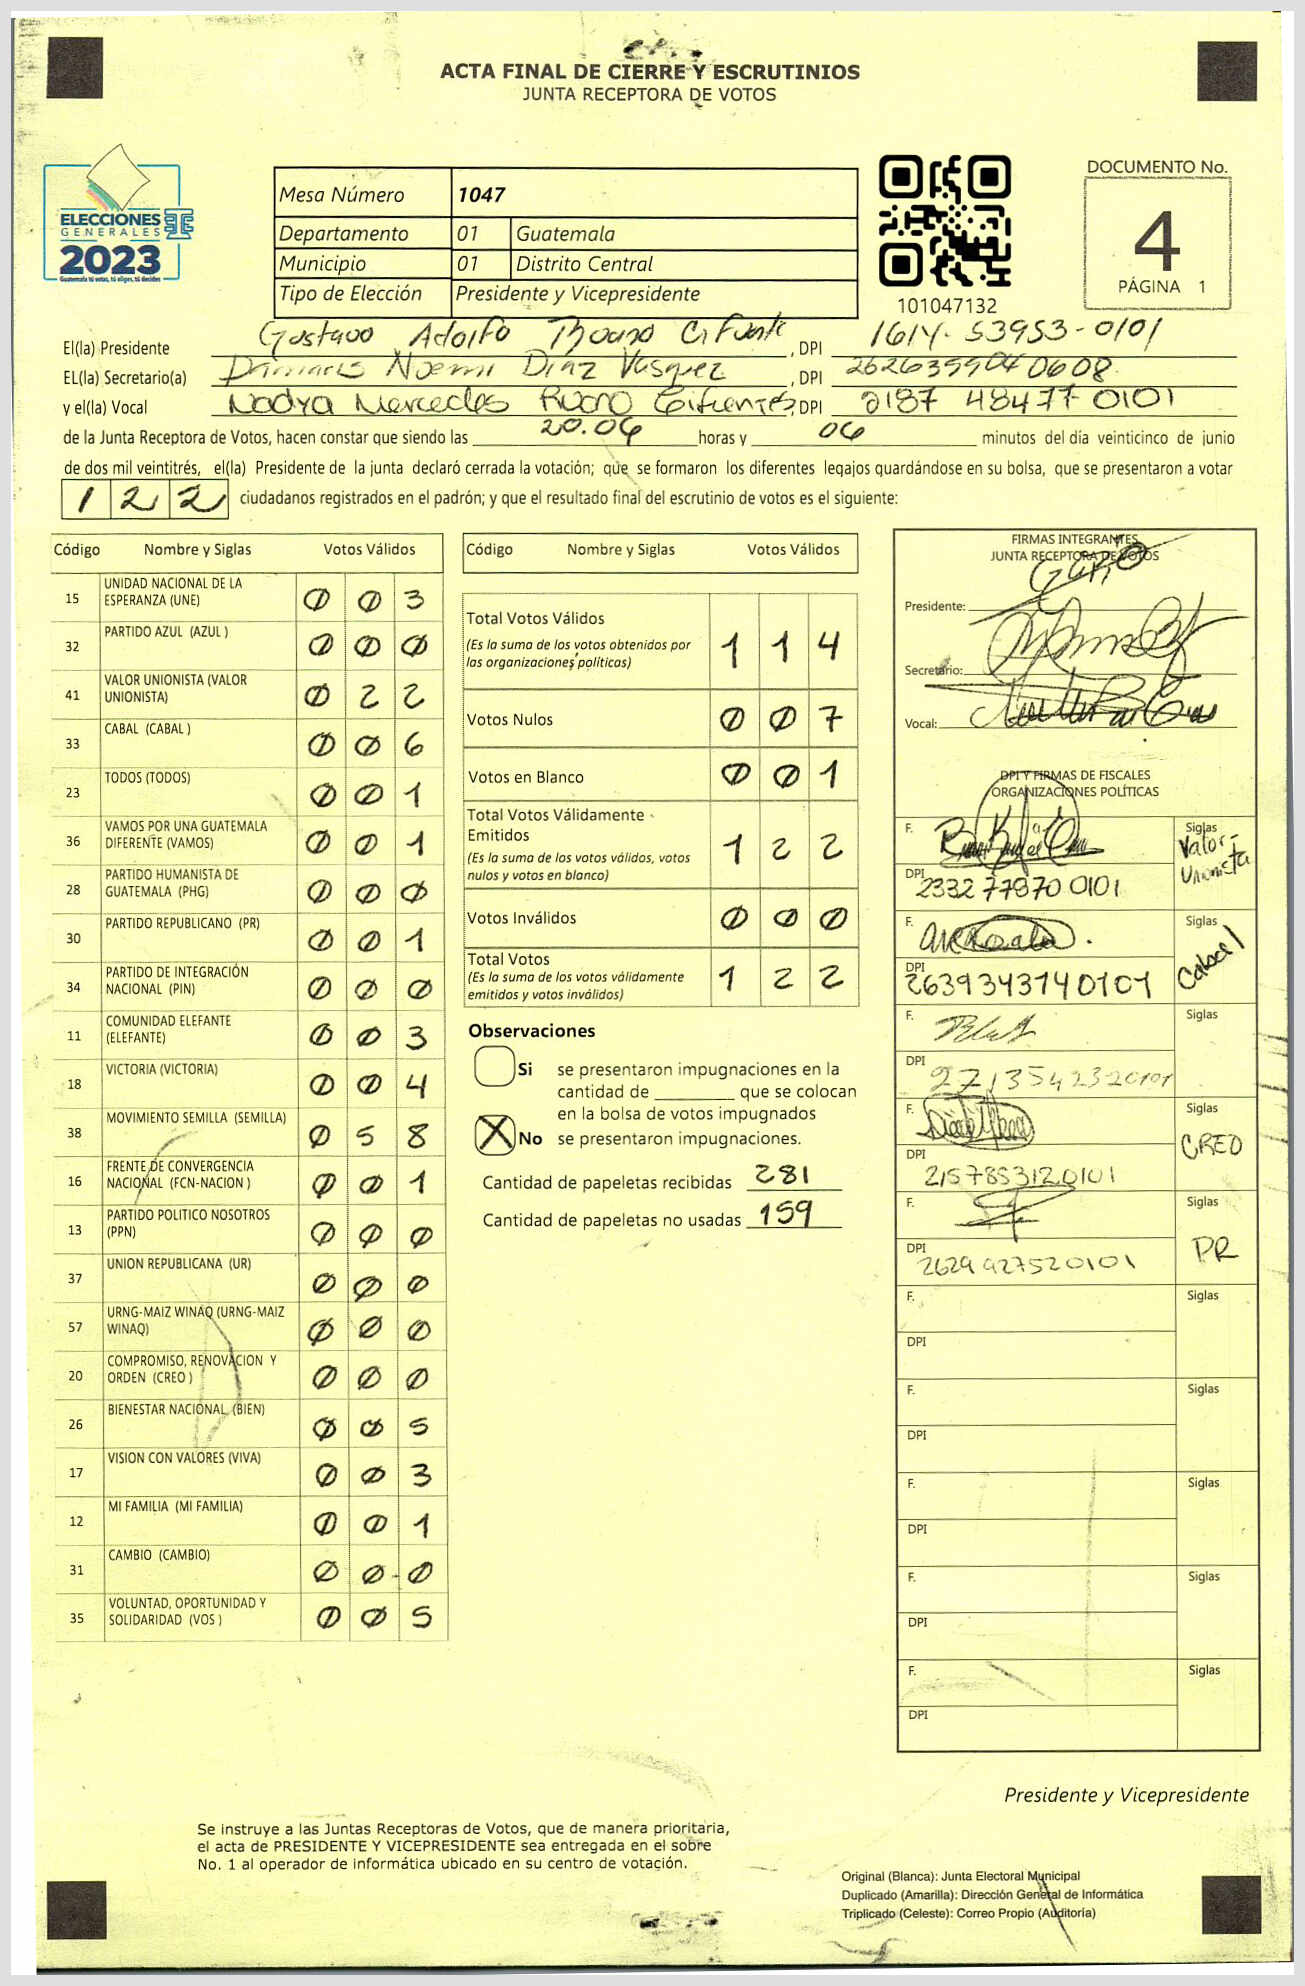 ACTA FINAL DE CIERRE Y ESCRUTINIOS
JUNTA RECEPTORA DE VOTOS
ELECCIONES
GENERALES
2023
Guatemala tú votas, tú eliges, tú decides
Mesa Número 1047
Departamento 01 Guatemala
Municipio 01 Distrito Central
Tipo de Elección Presidente y Vicepresidente
101047132
DOCUMENTO No.
4
PÁGINA 1
El(la) Presidente Gustavo Adolfo , DPI 1614-53953-0101
EL(la) Secretario(a) Damaris Noemi Diaz Vasquez , DPI
y el(la) Vocal Nadya Mercedes Ruano Cifuentes, DPI 2187 48477 0101
de la Junta Receptora de Votos, hacen constar que siendo las 20.06 horas y 06 minutos del día veinticinco de junio
de dos mil veintitrés, el(la) Presidente de la junta declaró cerrada la votación; que se formaron los diferentes legajos quardándose en su bolsa, que se presentaron a votar
122 ciudadanos registrados en el padrón; y que el resultado final del escrutinio de votos es el siguiente:
Código Nombre y Siglas Votos Válidos
15 UNIDAD NACIONAL DE LA ESPERANZA (UNE) 0 0 3
32 PARTIDO AZUL (AZUL ) 0 0 0
41 VALOR UNIONISTA (VALOR UNIONISTA) 0 2 2
33 CABAL (CABAL ) 0 0 6
23 TODOS (TODOS) 0 0 1
36 VAMOS POR UNA GUATEMALA DIFERENTE (VAMOS) 0 0 1
28 PARTIDO HUMANISTA DE GUATEMALA (PHG) 0 0 0
30 PARTIDO REPUBLICANO (PR) 0 0 1
34 PARTIDO DE INTEGRACIÓN NACIONAL (PIN) 0 0 0
11 COMUNIDAD ELEFANTE (ELEFANTE) 0 0 3
18 VICTORIA (VICTORIA) 0 0 4
38 MOVIMIENTO SEMILLA (SEMILLA) 0 5 8
16 FRENTE DE CONVERGENCIA NACIONAL (FCN-NACION ) 0 0 1
13 PARTIDO POLITICO NOSOTROS (PPN) 0 0 0
37 UNION REPUBLICANA (UR) 0 0 0
57 URNG-MAIZ WINAQ (URNG-MAIZ WINAQ) 0 0 0
20 COMPROMISO, RENOVACION Y ORDEN (CREO ) 0 0 0
26 BIENESTAR NACIONAL (BIEN) 0 0 5
17 VISION CON VALORES (VIVA) 0 0 3
12 MI FAMILIA (MI FAMILIA) 0 0 1
31 CAMBIO (CAMBIO) 0 0 0
35 VOLUNTAD, OPORTUNIDAD Y SOLIDARIDAD (VOS ) 0 0 5
Código Nombre y Siglas Votos Válidos
Total Votos Válidos 1 1 4
(Es la suma de los votos obtenidos por
las organizaciones políticas)
Votos Nulos 0 0 7
Votos en Blanco 0 0 1
Total Votos Válidamente
Emitidos 1 2 2
(Es la suma de los votos válidos, votos
nulos y votos en blanco)
Votos Inválidos 0 0 0
Total Votos 1 2 2
(Es la suma de los votos válidamente
emitidos y votos inválidos)
Observaciones
Si se presentaron impugnaciones en la
cantidad de ________ que se colocan
en la bolsa de votos impugnados
X No se presentaron impugnaciones.
Cantidad de papeletas recibidas 281
Cantidad de papeletas no usadas 159
FIRMAS INTEGRANTES
JUNTA RECEPTORA DE VOTOS
Presidente:
Secretario:
Vocal:
DPI Y FIRMAS DE FISCALES
ORGANIZACIONES POLÍTICAS
F. Siglas Valor-Unionista
DPI 2332 77970 0101
F. Siglas Cabal
DPI 2639343140101
F. Siglas
DPI 2713542320101
F. Siglas CREO
DPI 2157853120101
F. Siglas PR
DPI 2629 927520101
F. Siglas
DPI
F. Siglas
DPI
F. Siglas
DPI
F. Siglas
DPI
F. Siglas
DPI
Presidente y Vicepresidente
Se instruye a las Juntas Receptoras de Votos, que de manera prioritaria,
el acta de PRESIDENTE Y VICEPRESIDENTE sea entregada en el sobre
No. 1 al operador de informática ubicado en su centro de votación.
Original (Blanca): Junta Electoral Municipal
Duplicado (Amarilla): Dirección General de Informática
Triplicado (Celeste): Correo Propio (Auditoría)